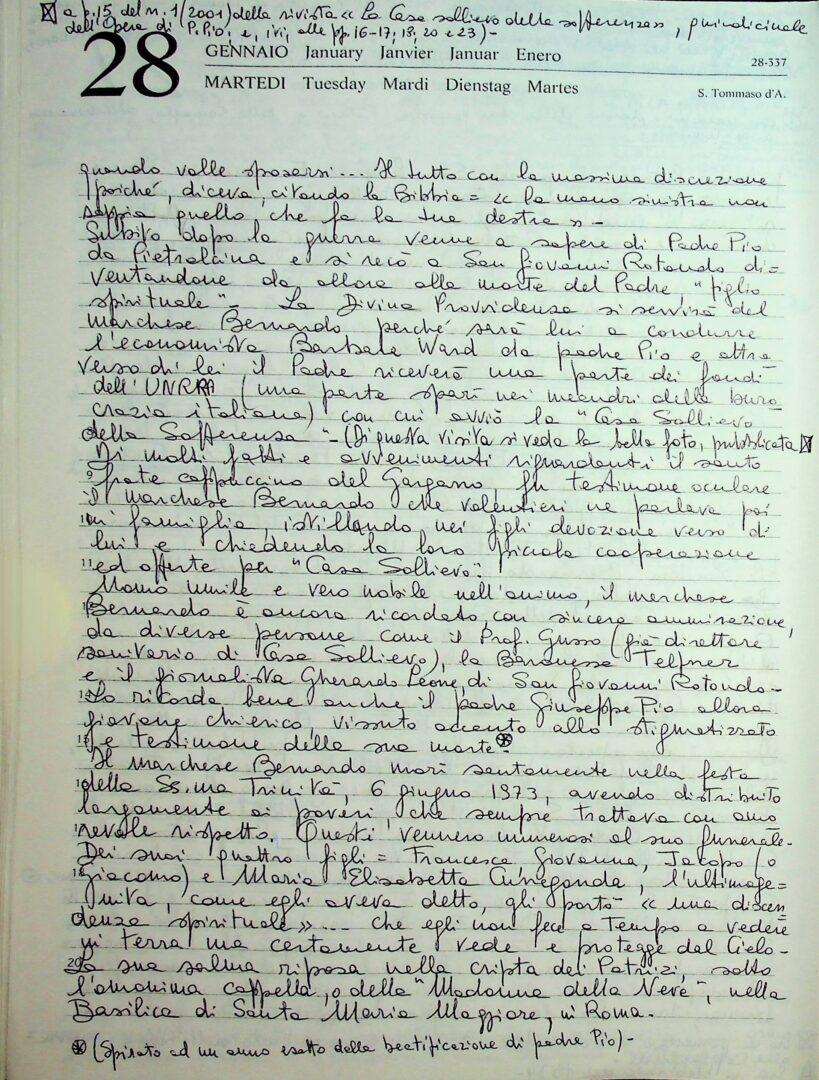 ☒ a p. 15 del n. 1 (2001) della rivista « La Casa sollievo della sofferenza», quindicinale
dell'Opera di P. Pio, e, ivi, alle pp. 16-17, 18, 20 e 23) -
28
GENNAIO January Janvier Januar Enero
28-337
MARTEDI Tuesday Mardi Dienstag Martes
S. Tommaso d'A.
quando volle sposarsi... Il tutto con la massima discrezione
poiché, diceva, citando la Bibbia = « la mano sinistra non
sappia quello che fa la tua destra » -
Subito dopo la guerra venne a sapere di Padre Pio
da Pietralcina e si recò a San Giovanni Rotondo di=
ventandone da allora alla morte del Padre, "figlio
spirituale" - La Divina Provvidenza si servirà del
marchese Bernardo perché sarà lui a condurre
l'economista Barbara Ward da padre Pio e attra
verso di lei il Padre riceverà una parte dei fondi
dell'UNRRA (una parte sparì nei meandri della buro
crazia italiana) con cui avviò la "Casa Sollievo
della Sofferenza" - (Di questa visita si veda la bella foto, pubblicata ☒
Di molti fatti e avvenimenti riguardanti il santo
9 frate cappuccino del Gargano, fu testimone oculare
il marchese Bernardo che volentieri ne parlava poi
10 in famiglia, istillando nei figli devozione verso di
lui e chiedendo la loro piccola cooperazione
11 ed offerte per "Casa Sollievo".
Uomo umile e vero nobile nell'animo, il marchese
Bernardo è ancora ricordato, con sincera ammirazione,
da diverse persone come il Prof. Gusso (già direttore
sanitario di Casa Sollievo), la Baronessa Telfner
e il giornalista Gherardo Leone, di San Giovanni Rotondo -
Lo ricorda bene anche il padre Giuseppe Pio allora
giovane chierico, vissuto accanto allo stigmatizzato
e testimone della sua morte. ⊛
Il marchese Bernardo morì santamente nella festa
della Ss.ma Trinità, 6 giugno 1973, avendo distribuito
largamente ai poveri, che sempre trattava con amo
revole rispetto. Questi vennero numerosi al suo funerale -
Dei suoi quattro figli = Francesca Giovanna, Jacopo (o
Giacomo) e Maria Elisabetta Cunegonda, l'ultimoge=
nita, come egli aveva detto, gli portò « una discen
denza spirituale » ... che egli non fece a tempo a vedere
in terra ma certamente vede e protegge dal Cielo -
20 La sua salma riposa nella cripta dei Patrizi, sotto
l'omonima cappella, o della "Madonna della Neve", nella
Basilica di Santa Maria Maggiore, in Roma.
⊛ (Spirato ad un anno esatto della beatificazione di padre Pio) -